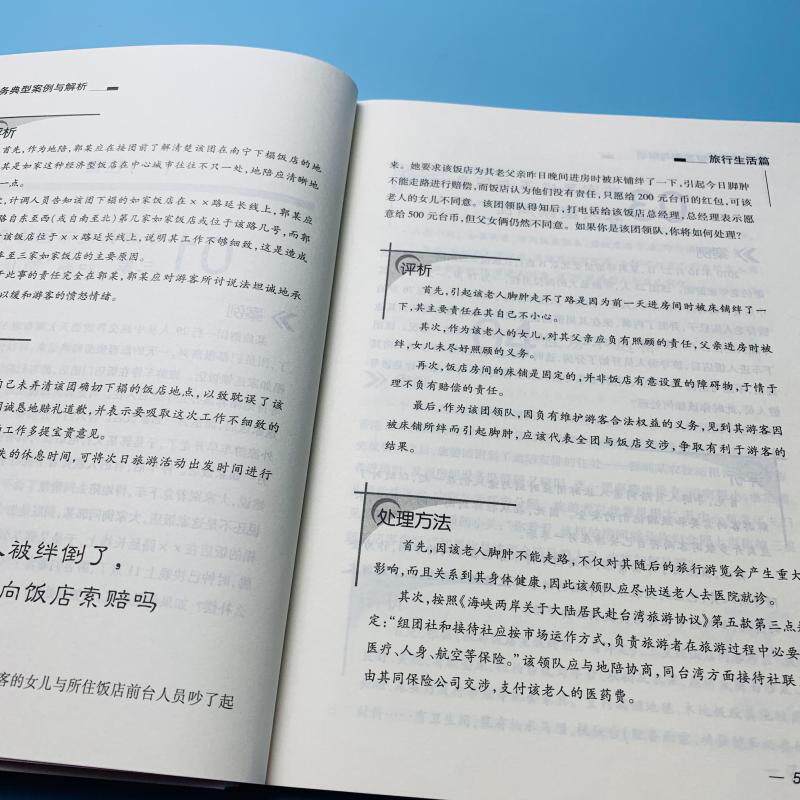 务典型案例与解析
评析
首先，作为地陪，郭某应在接团前了解清楚该团在南宁下榻饭店的地
其是如家这种经济型饭店在中心城市往往不只一处，地陪应清晰地
一点。
，计调人员告知该团下榻的如家饭店在××路延长线上，郭某应
路自东至西（或自南至北）第几家如家饭店或位于该路几号，而郭
该饭店位于××路延长线上，说明其工作不够细致，这是造成
至三家如家饭店的主要原因。
于此事的责任完全在郭某，郭某应对游客所讨说法坦诚地承
以缓和游客的愤怒情绪。
自己未弄清该团确切下榻的饭店地点，以致耽误了该
诚恳地赔礼道歉，并表示要吸取这次工作不细致的
工作多提宝贵意见。
失的休息时间，可将次日旅游活动出发时间进行
人被绊倒了，
向饭店索赔吗
客的女儿与所住饭店前台人员吵了起
旅行生活篇
来。她要求该饭店为其老父亲昨日晚间进房时被床铺绊了一下，引起今日脚肿
不能走路进行赔偿，而饭店认为他们没有责任，只愿给 200 元台币的红包，可该
老人的女儿不同意。该团领队得知后，打电话给该饭店总经理，总经理表示愿
意给 500 元台币，但父女俩仍然不同意。如果你是该团领队，你将如何处理？
评析
首先，引起该老人脚肿走不了路是因为前一天进房间时被床铺绊了一
下，其主要责任在其自己不小心。
其次，作为该老人的女儿，对其父亲应负有照顾的责任，父亲进房时被
绊，女儿未尽好照顾的义务。
再次，饭店房间的床铺是固定的，并非饭店有意设置的障碍物，于情于
理不负有赔偿的责任。
最后，作为该团领队，因负有维护游客合法权益的义务，见到其游客因
被床铺所绊而引起脚肿，应该代表全团与饭店交涉，争取有利于游客的
结果。
处理方法
首先，因该老人脚肿不能走路，不仅对其随后的旅行游览会产生重大
影响，而且关系到其身体健康，因此该领队应尽快送老人去医院就诊。
其次，按照《海峡两岸关于大陆居民赴台湾旅游协议》第五款第三点规
定：“组团社和接待社应按市场运作方式，负责旅游者在旅游过程中必要
医疗、人身、航空等保险。”该领队应与地陪协商，同台湾方面接待社联
由其同保险公司交涉，支付该老人的医药费。
— 5